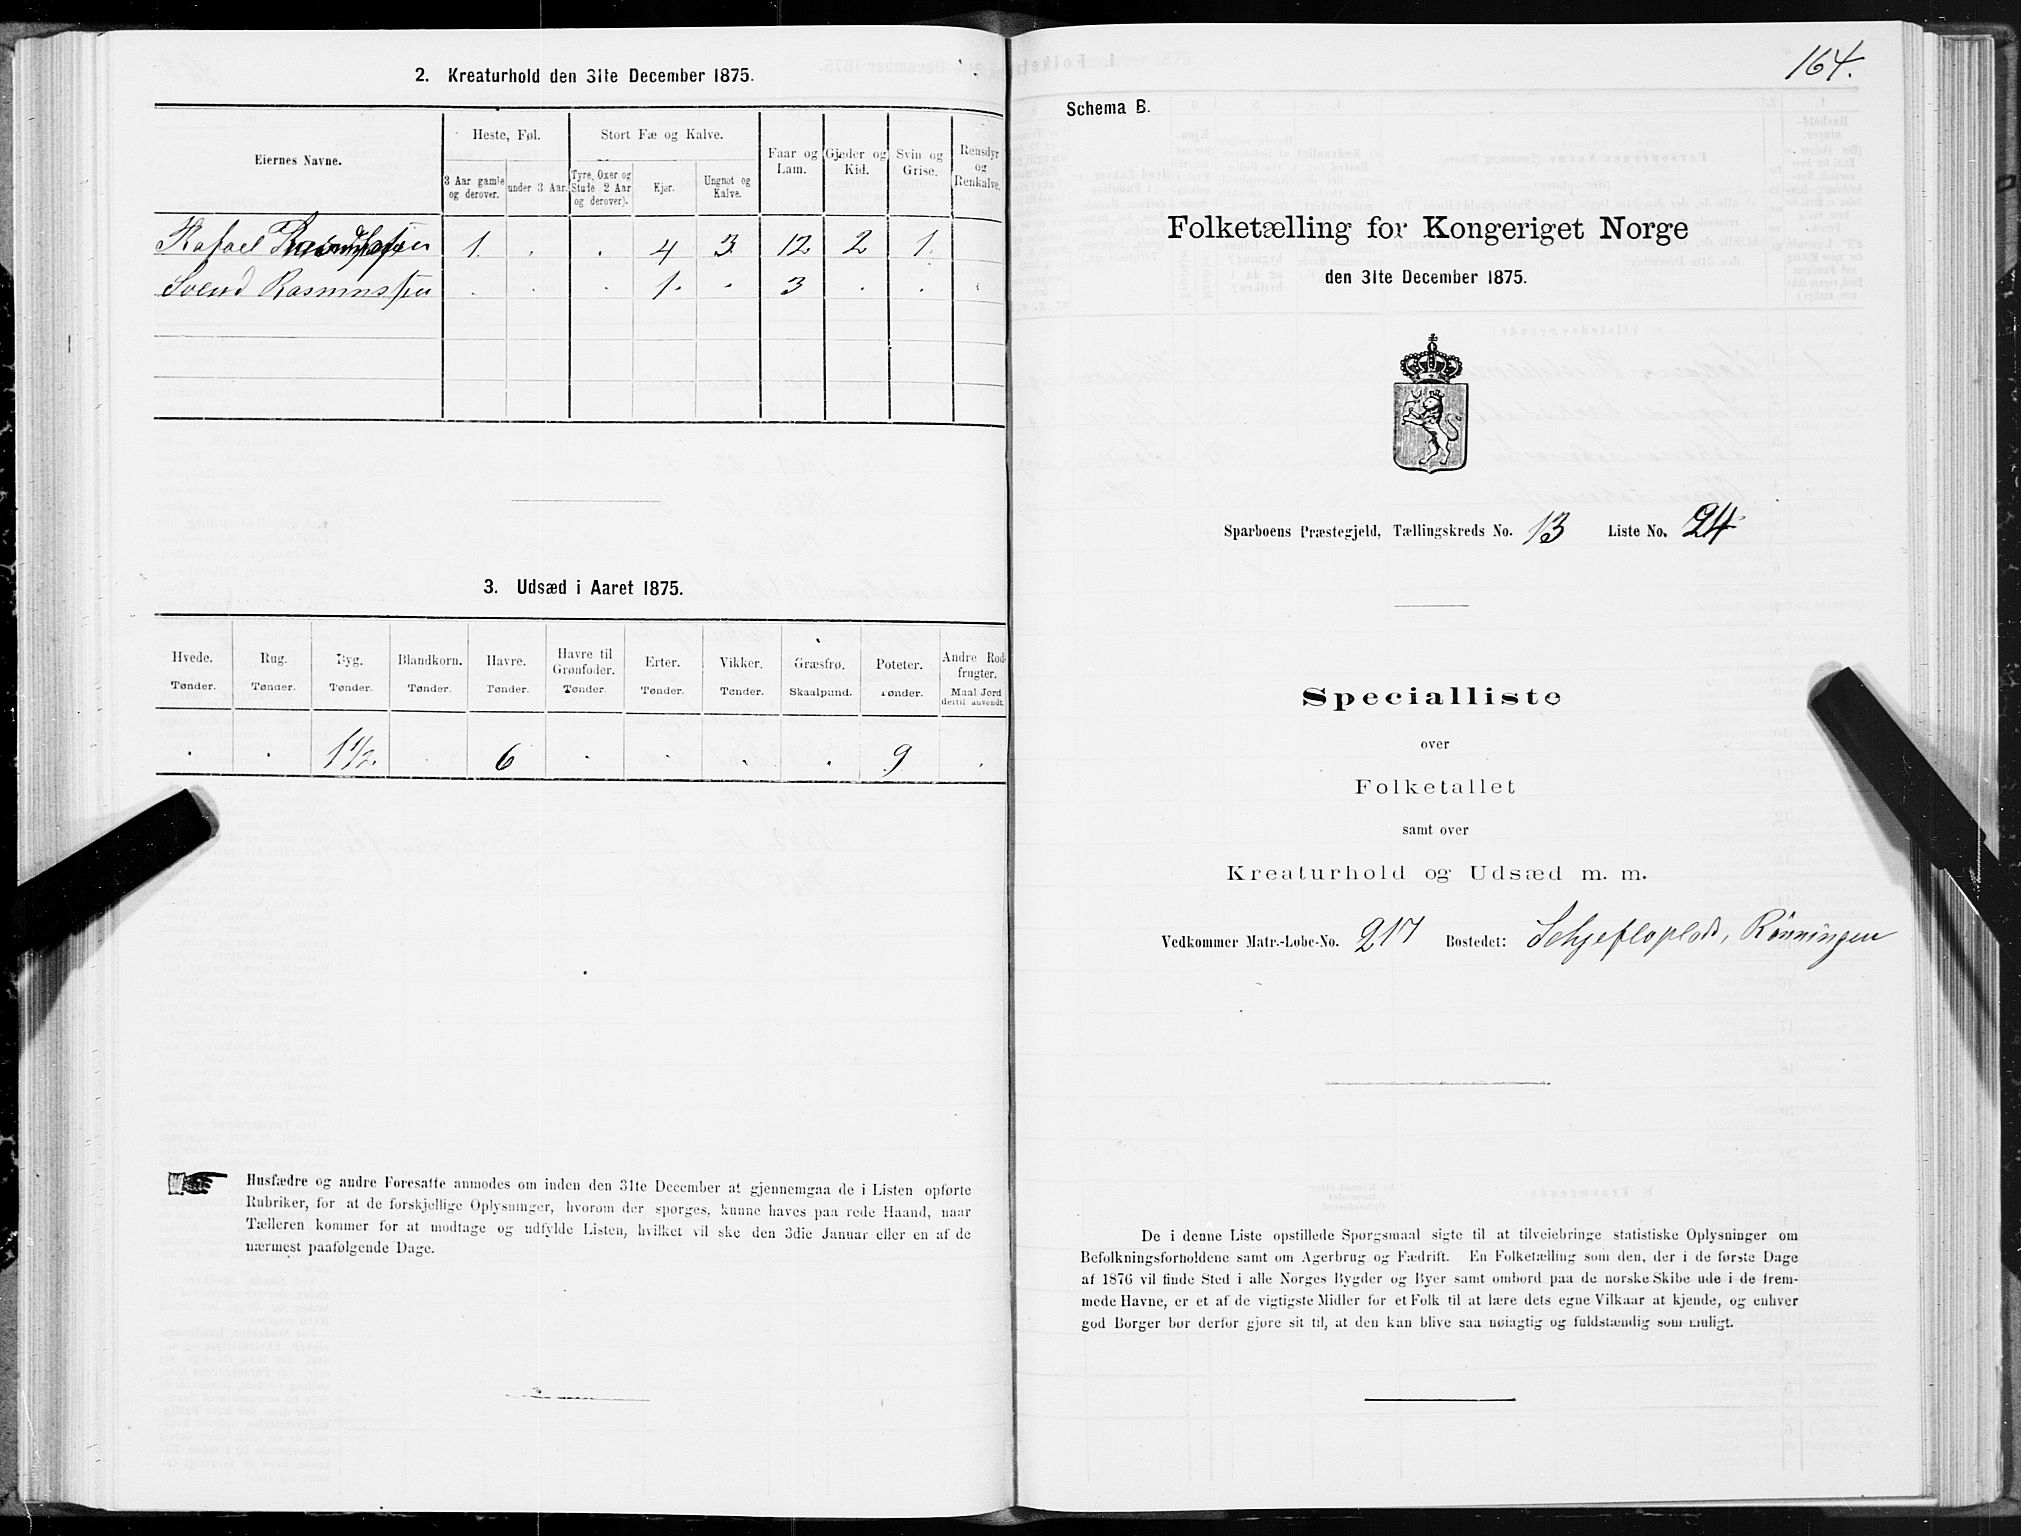 2. Kreaturhold den 31te December 1875.
Eiernes Navne.
Heste, Føl.
3 Aar gamle og derover.
under 3 Aar.
Stort Fæ og Kalve.
Tyre, Oxer og Stude (2 Aar og derover).
Kjør.
Ungnøt og Kalve.
Faar og Lam.
Gjeder og Kid.
Svin og Grise.
Rensdyr og Renkalve.
Rafael 1. . . 4 3 12 2 1.
Svend Rasmussen . . . 1. . 3 . . .
3. Udsæd i Aaret 1875.
Hvede. Rug. Byg. Blandkorn. Havre. Havre til Grønfoder. Erter. Vikker. Græsfrø. Poteter. Andre Rodfrugter.
Tønder. Tønder. Tønder. Tønder. Tønder. Tønder. Tønder. Tønder. Skaalpund. Tønder. Maal Jord dertil anvendt.
. . 1 1/2. . 6 . . . . 9 .
Husfædre og andre Foresatte anmodes om inden den 31te December at gjennemgaa de i Listen opførte
Rubriker, for at de forskjellige Oplysninger, hvorom der spørges, kunne haves paa rede Haand, naar
Tælleren kommer for at modtage og udfylde Listen, hvilket vil ske den 3die Januar eller en af de
nærmest paafølgende Dage.
164.
Schema B.
Folketælling for Kongeriget Norge
den 31te December 1875.
Sparboens Præstegjeld, Tællingskreds No. 13 Liste No. 24
Specialliste
over
Folketallet
samt over
Kreaturhold og Udsæd m. m.
Vedkommer Matr.-Løbe-No. 217 Bostedet: Schjefloplads, Rönningen
De i denne Liste opstillede Spørgsmaal sigte til at tilveiebringe statistiske Oplysninger om
Befolkningsforholdene samt om Agerbrug og Fædrift. En Folketælling som den, der i de første Dage
af 1876 vil finde Sted i alle Norges Bygder og Byer samt ombord paa de norske Skibe ude i de frem-
mede Havne, er et af de vigtigste Midler for et Folk til at lære dets egne Vilkaar at kjende, og enhver
god Borger bør derfor gjøre sit til, at den kan blive saa nøiagtig og fuldstændig som muligt.